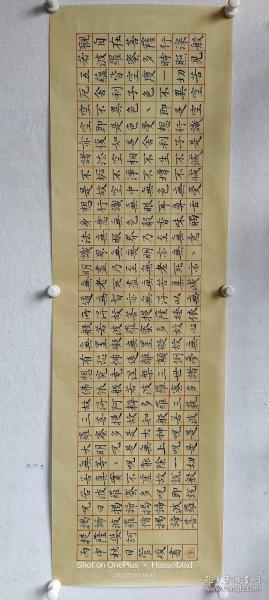 觀自在菩薩行深般
若波羅蜜多時照見
五蘊皆空度一切苦
厄舍利子色不異空
空不異色色即是空
空即是色受想行識
亦復如是舍利子是
諸法空相不生不滅
不垢不淨不增不減
是故空中無色無受
想行識無眼耳鼻舌
身意無色聲香味觸
法無眼界乃至無意
識界無無明亦無無
明盡乃至無老死亦
無老死盡無苦集滅
道無智亦無得以無
所得故菩提薩埵依
般若波羅蜜多故心
無罣礙無罣礙故無
有恐怖遠離顛倒夢
想究竟涅槃三世諸
佛依般若波羅蜜多
故得阿耨多羅三藐
三菩提故知般若波
羅蜜多是大神咒是
大明咒是無上咒是
無等等咒能除一切
苦真實不虛故說般
若波羅蜜多咒即說
咒曰揭諦揭諦波羅
揭諦波羅僧揭諦菩
提薩婆訶
Shot on OnePlus × Hasselblad